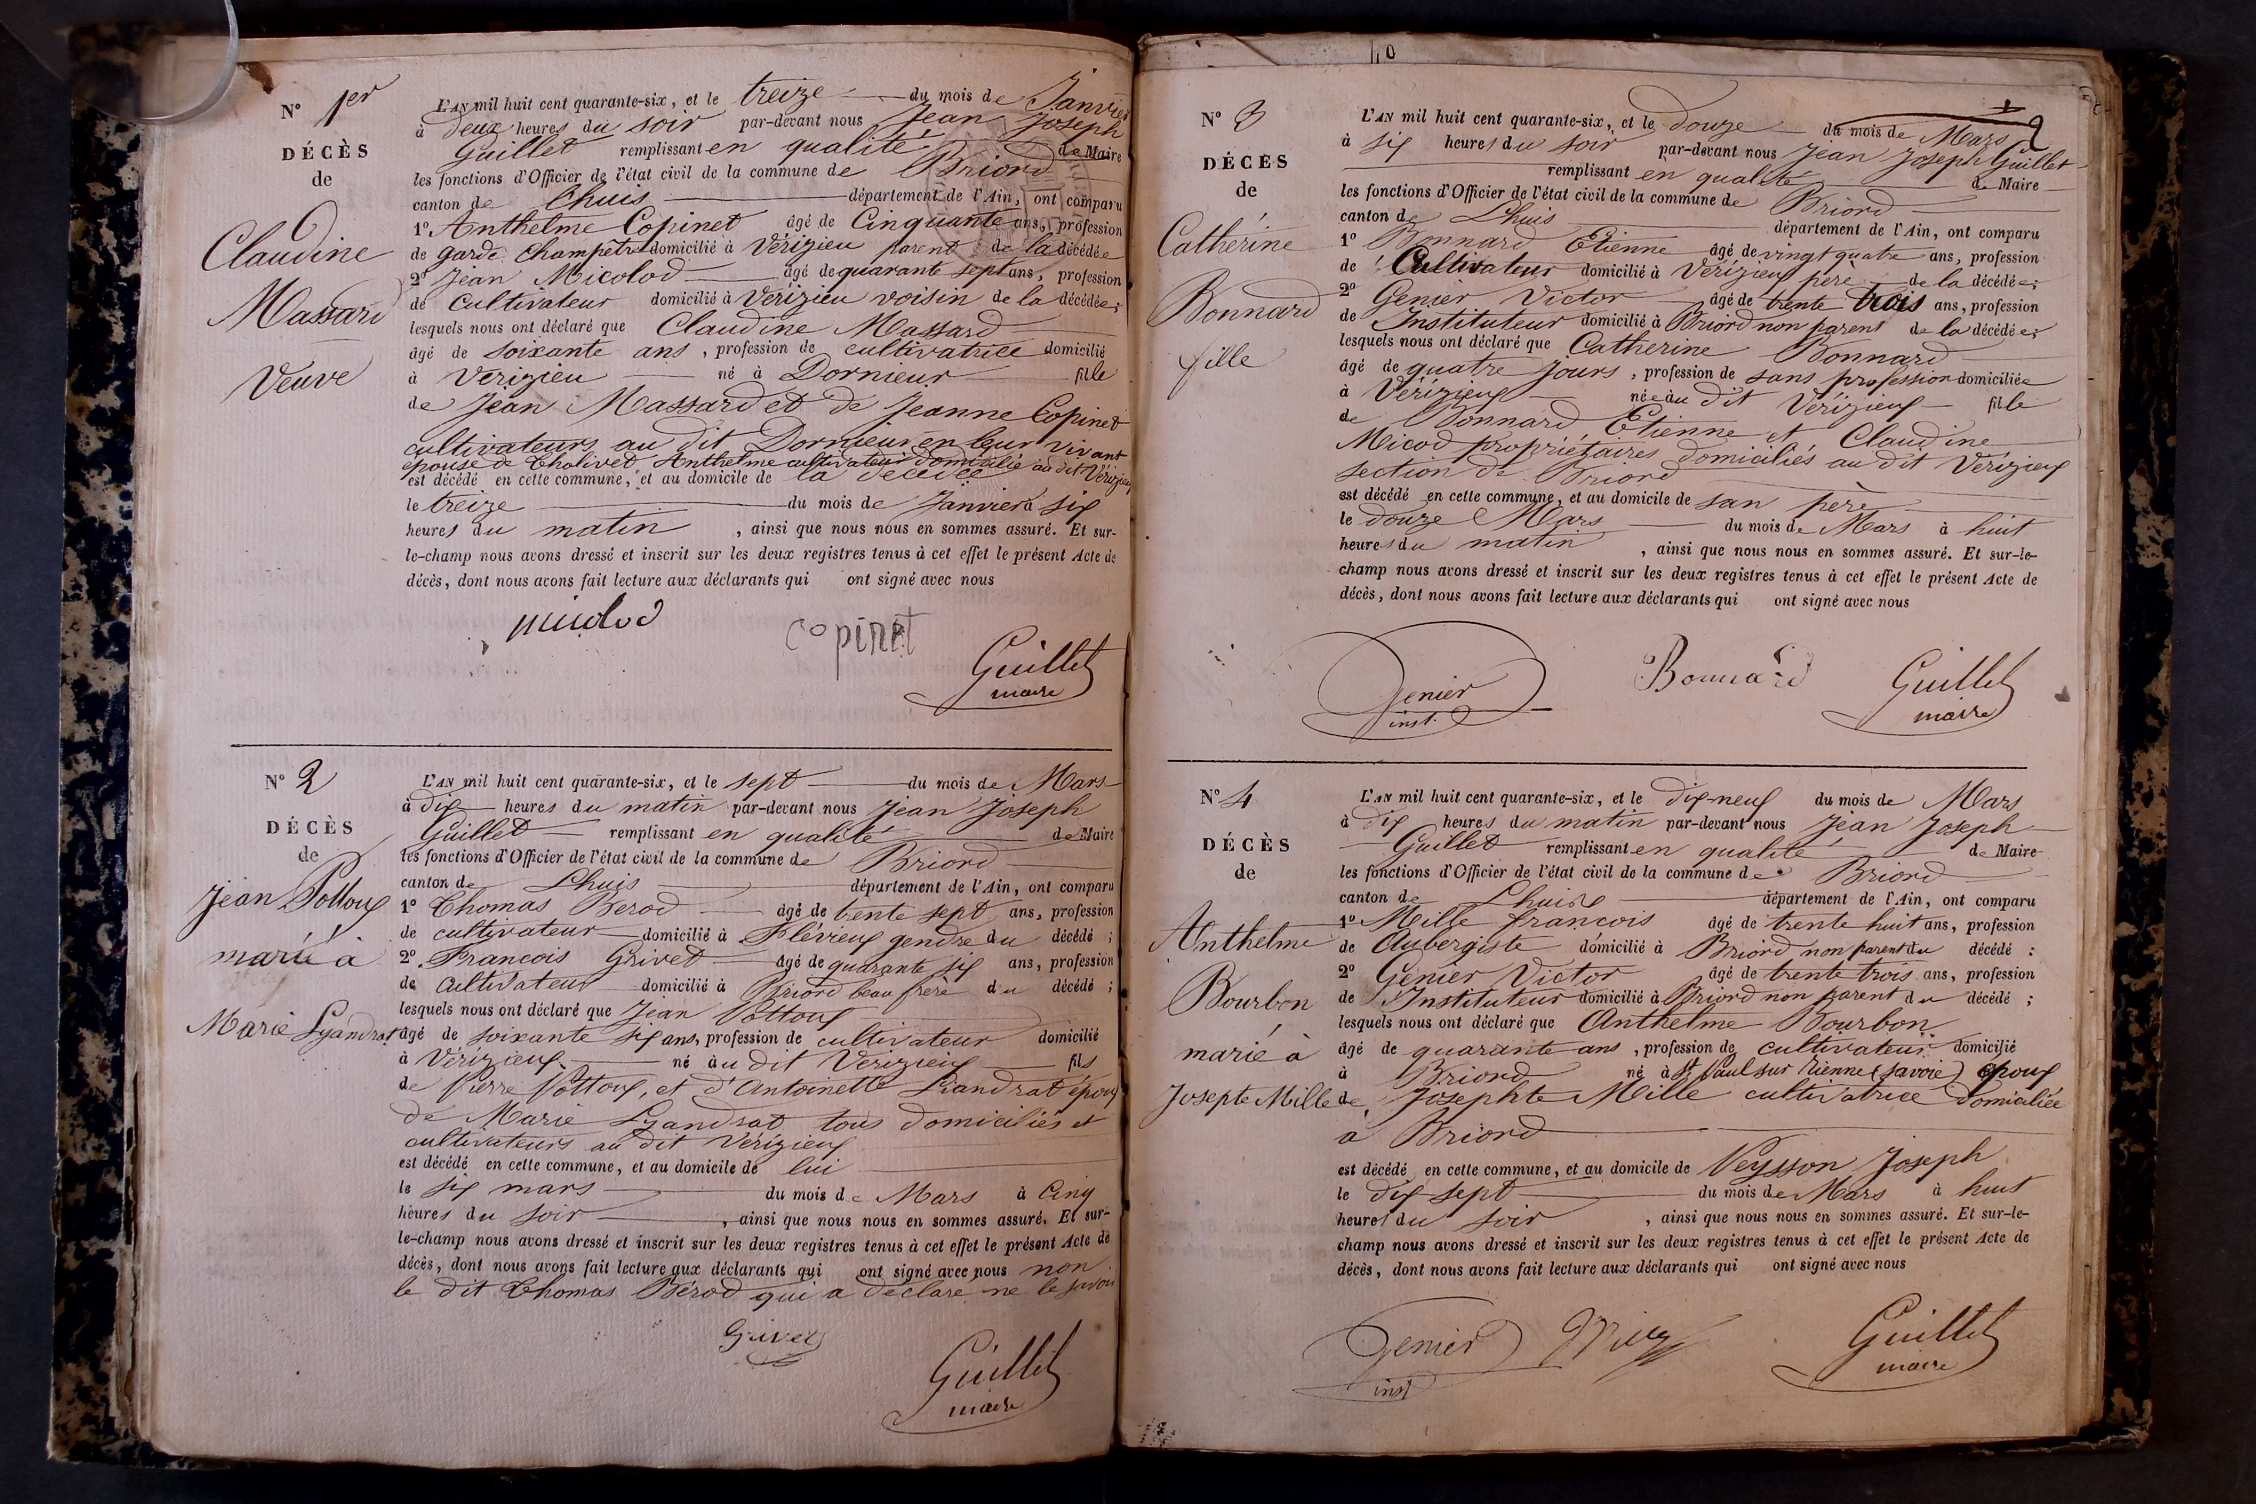 N° 1er
DÉCÈS
de
Claudine
Massard
Veuve
L'AN mil huit cent quarante-six, et le treize du mois de Janvier
à deux heures du soir par-devant nous Jean Joseph
Guillet remplissant en qualité de Maire
les fonctions d'Officier de l'état civil de la commune de Briord
canton de Lhuis département de l'Ain, ont comparu
1° Anthelme Copinet âgé de Cinquante ans, profession
de garde champêtre domicilié à Vérizieu parent de la décédée
2° Jean Micolod âgé de quarante sept ans, profession
de cultivateur domicilié à Vérizieu voisin de la décédée;
lesquels nous ont déclaré que Claudine Massard
âgé de soixante ans, profession de cultivatrice domicilié
à Verizieu né à Dornieur fille
de Jean Massard et de Jeanne Copinet
cultivateurs au dit Dornieur en leur vivant
épouse de Tholivet Anthelme cultivateur domicilié au dit Vérizieu
est décédé en cette commune, et au domicile de la décédée
le treize du mois de Janvier à six
heures du matin, ainsi que nous nous en sommes assuré. Et sur-
le-champ nous avons dressé et inscrit sur les deux registres tenus à cet effet le présent Acte de
décès, dont nous avons fait lecture aux déclarants qui ont signé avec nous
micolod
copinet
Guillet
maire
N° 2
DÉCÈS
de
Jean Pottoux
marié à
Marie Lyandrat
L'AN mil huit cent quarante-six, et le sept du mois de Mars
à dix heures du matin par-devant nous Jean Joseph
Guillet remplissant en qualité de Maire
les fonctions d'Officier de l'état civil de la commune de Briord
canton de Lhuis département de l'Ain, ont comparu
1° Thomas Berod âgé de trente sept ans, profession
de cultivateur domicilié à Flévieux gendre du décédé;
2° Francois Grivet âgé de quarante six ans, profession
de cultivateur domicilié à Briord beau frère du décédé;
lesquels nous ont déclaré que Jean Pottoux
âgé de soixante six ans, profession de cultivateur domicilié
à Vérizieux né au dit Verizieux fils
de Pierre Pottoux, et d'Antoinette Liandrat époux
de Marie Lyandrat tous domiciliés et
cultivateurs au dit Vérizieux
est décédé en cette commune, et au domicile de lui
le six mars du mois de Mars à Cinq
heures du soir, ainsi que nous nous en sommes assuré. Et sur-
le-champ nous avons dressé et inscrit sur les deux registres tenus à cet effet le présent Acte de
décès, dont nous avons fait lecture aux déclarants qui ont signé avec nous non
le dit Thomas Bérod qui a déclaré ne le savoir
Grivet
Guillet
maire
40
2
N° 3
DÉCÈS
de
Catherine
Bonnard
fille
L'AN mil huit cent quarante-six, et le douze du mois de Mars
à six heures du soir par-devant nous Jean Joseph Guillet
remplissant en qualité de Maire
les fonctions d'Officier de l'état civil de la commune de Briord
canton de Lhuis département de l'Ain, ont comparu
1° Bonnard Etienne âgé de vingt quatre ans, profession
de Cultivateur domicilié à Vérizieux père de la décédée;
2° Genier Victor âgé de trente trois ans, profession
de Instituteur domicilié à Briord non parent de la décédée;
lesquels nous ont déclaré que Catherine Bonnard
âgé de quatre jours, profession de sans profession domiciliée
à Vérizieux née au dit Vérizieux fille
de Bonnard Etienne et Claudine
Micod propriétaires domiciliés au dit Vérizieux
section de Briord
est décédé en cette commune, et au domicile de san père
le douze Mars du mois de Mars à huit
heures du matin, ainsi que nous nous en sommes assuré. Et sur-le-
champ nous avons dressé et inscrit sur les deux registres tenus à cet effet le présent Acte de
décès, dont nous avons fait lecture aux déclarants qui ont signé avec nous
Genier
inst.
Bonnard
Guillet
maire
N° 4
DÉCÈS
de
Anthelme
Bourbon
marié à
Josepte Mille
L'AN mil huit cent quarante-six, et le dix-neuf du mois de Mars
à dix heures du matin par-devant nous Jean Joseph
Guillet remplissant en qualité de Maire
les fonctions d'Officier de l'état civil de la commune de Briord
canton de Lhuis département de l'Ain, ont comparu
1° Mille francois âgé de trente huit ans, profession
de Aubergiste domicilié à Briord non parent du décédé:
2° Genier Victor âgé de trente trois ans, profession
de Instituteur domicilié à Briord non parent du décédé;
lesquels nous ont déclaré que Anthelme Bourbon
âgé de quarante ans, profession de cultivateur domicilié
à Briord né à St Paul sur Yienne (Savoie) époux
de Josephte Mille cultivatrice domiciliée
à Briord
est décédé en cette commune, et au domicile de Veysson Joseph
le dix sept du mois de Mars à huit
heures du soir, ainsi que nous nous en sommes assuré. Et sur-le-
champ nous avons dressé et inscrit sur les deux registres tenus à cet effet le présent Acte de
décès, dont nous avons fait lecture aux déclarants qui ont signé avec nous
Genier
inst
Guillet
maire